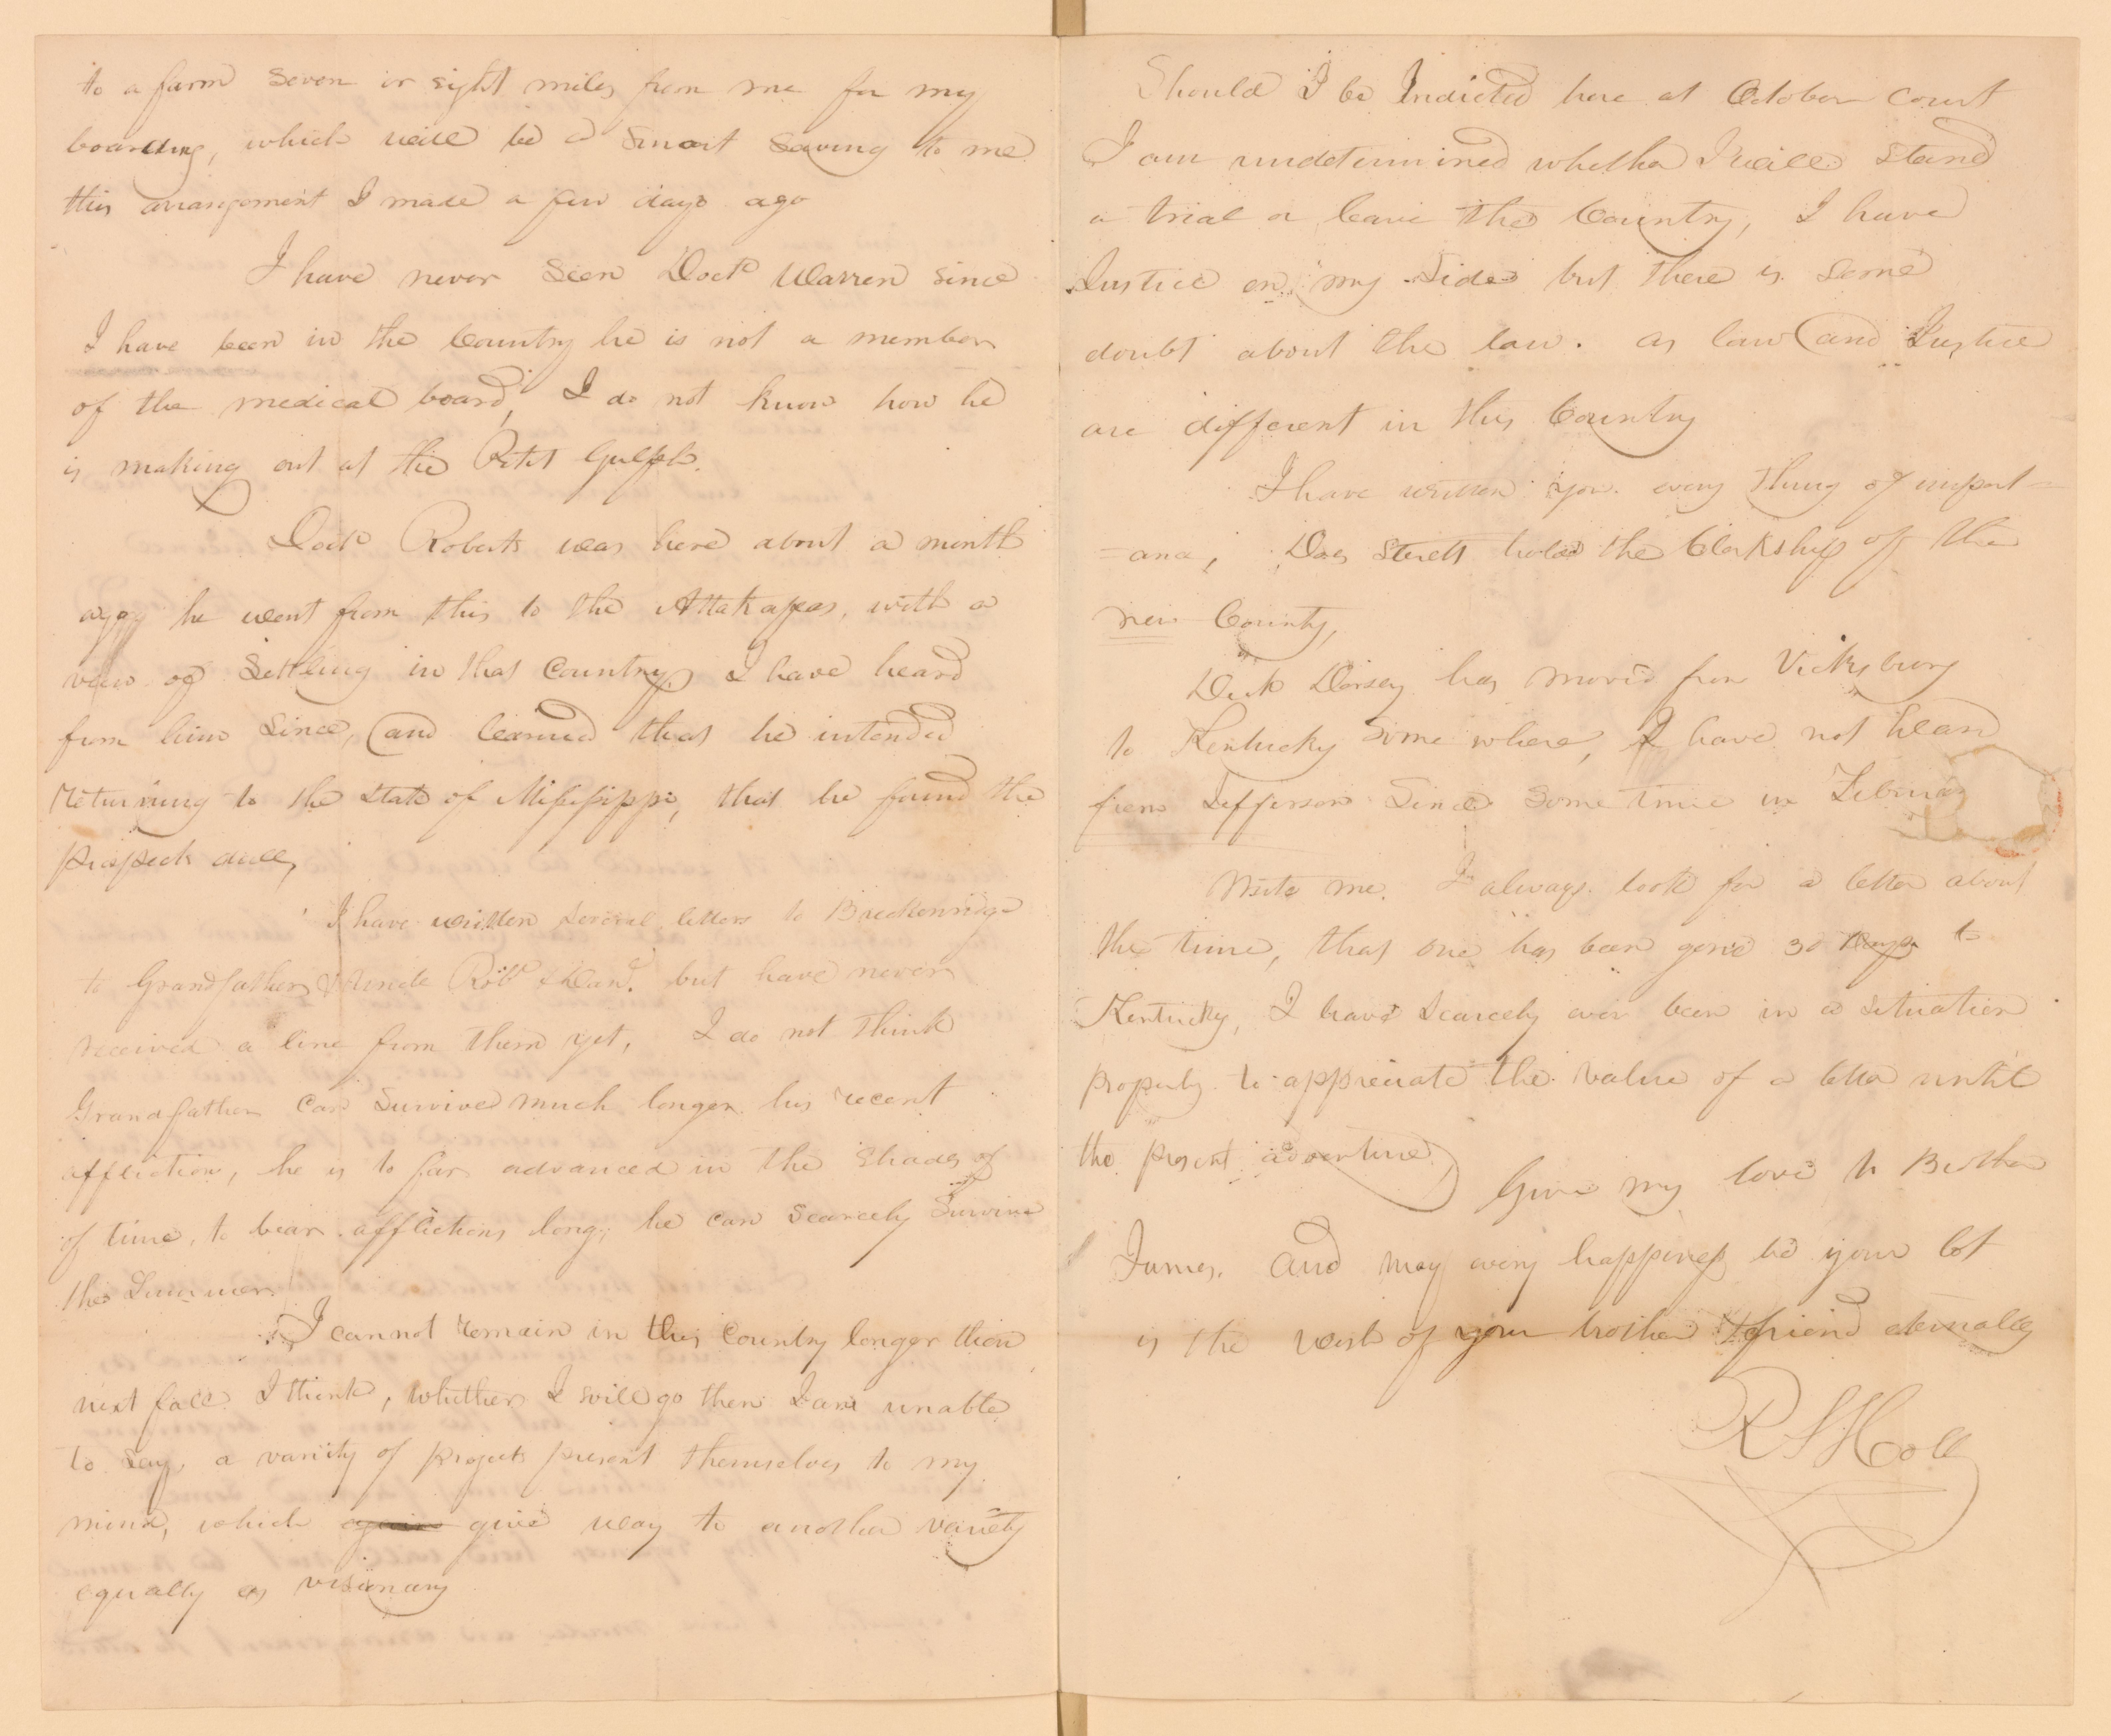 to a farm seven or eight miles from me for my
boarding, which will be a smart saving to me
this arrangement I made a few days ago
I have never seen Doct Warren since
I have been in the Country he is not a member
of the medical board, I do not know how he
is making out at the Petit Gulph.
Doct Roberts was here about a month
ago he went from this to the Attakapas, with a
view of settling in that Country, I have heard
from him since, and learned that he intended
returning to the State of Mississippi, that he found the
prospects dull,
I have written several letters to Breckenridge
to Grandfather, Uncle Robt & Dan. but have never
received a line from them yet, I do not think
Grandfather can Survive much longer his recent
affliction, he is to far advanced in the Shades of
of time, to bear afflictions long, he can scarcely Survive
the Summer.
I cannot remain in this Country longer then
next fall I think, whether I will go then I am unable
to say, a variety of projects present themselves to my
mind, which again give way to another variety
equally as visionary
Should I be Indicted here at October Court
I am undetermined whether I will stand
a trial or leave the Country, I have
Justice on my side but there is some
doubt about the law. as law and Justice
are different in this Country
I have written you every thing of import-
=ance, Does Sterett hold the Clerkship of the
new County,
Dick Dorsey has moved from Vicksburg
to Kentucky some where, I have not heard
from Jefferson since some time in Februar
Write me. I always look for a letter about
the time, that one has been gone 30 days to
Kentucky, I have scarcely ever been in a situation
properly to appreciate the value of a letter until
the present adventure, Give my love to Brother
James. and may every happiness be your lot
is the wish of your brother & friend eternally
R S Holl